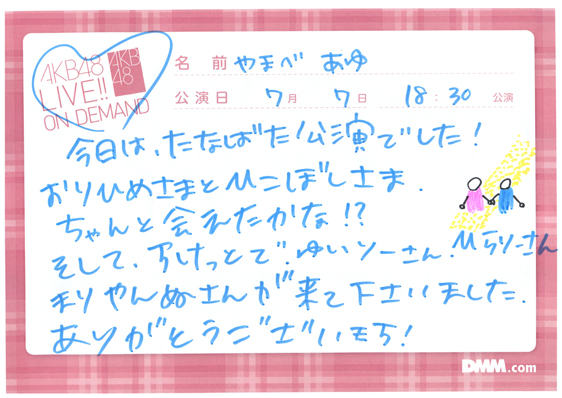 AKB48
LIVE!!
ON DEMAND
AKB
48
名 前 やまべ あゆ
公演日 7月 7日 18:30 公演
今日は、たなばた公演でした!
おりひめさまとひこぼしさま、
ちゃんと会えたかな!?
そして、 ゆいりーさん、ひらりーさん
まりやんぬさんが来て下さいました。
ありがとうございます!
DMM.com